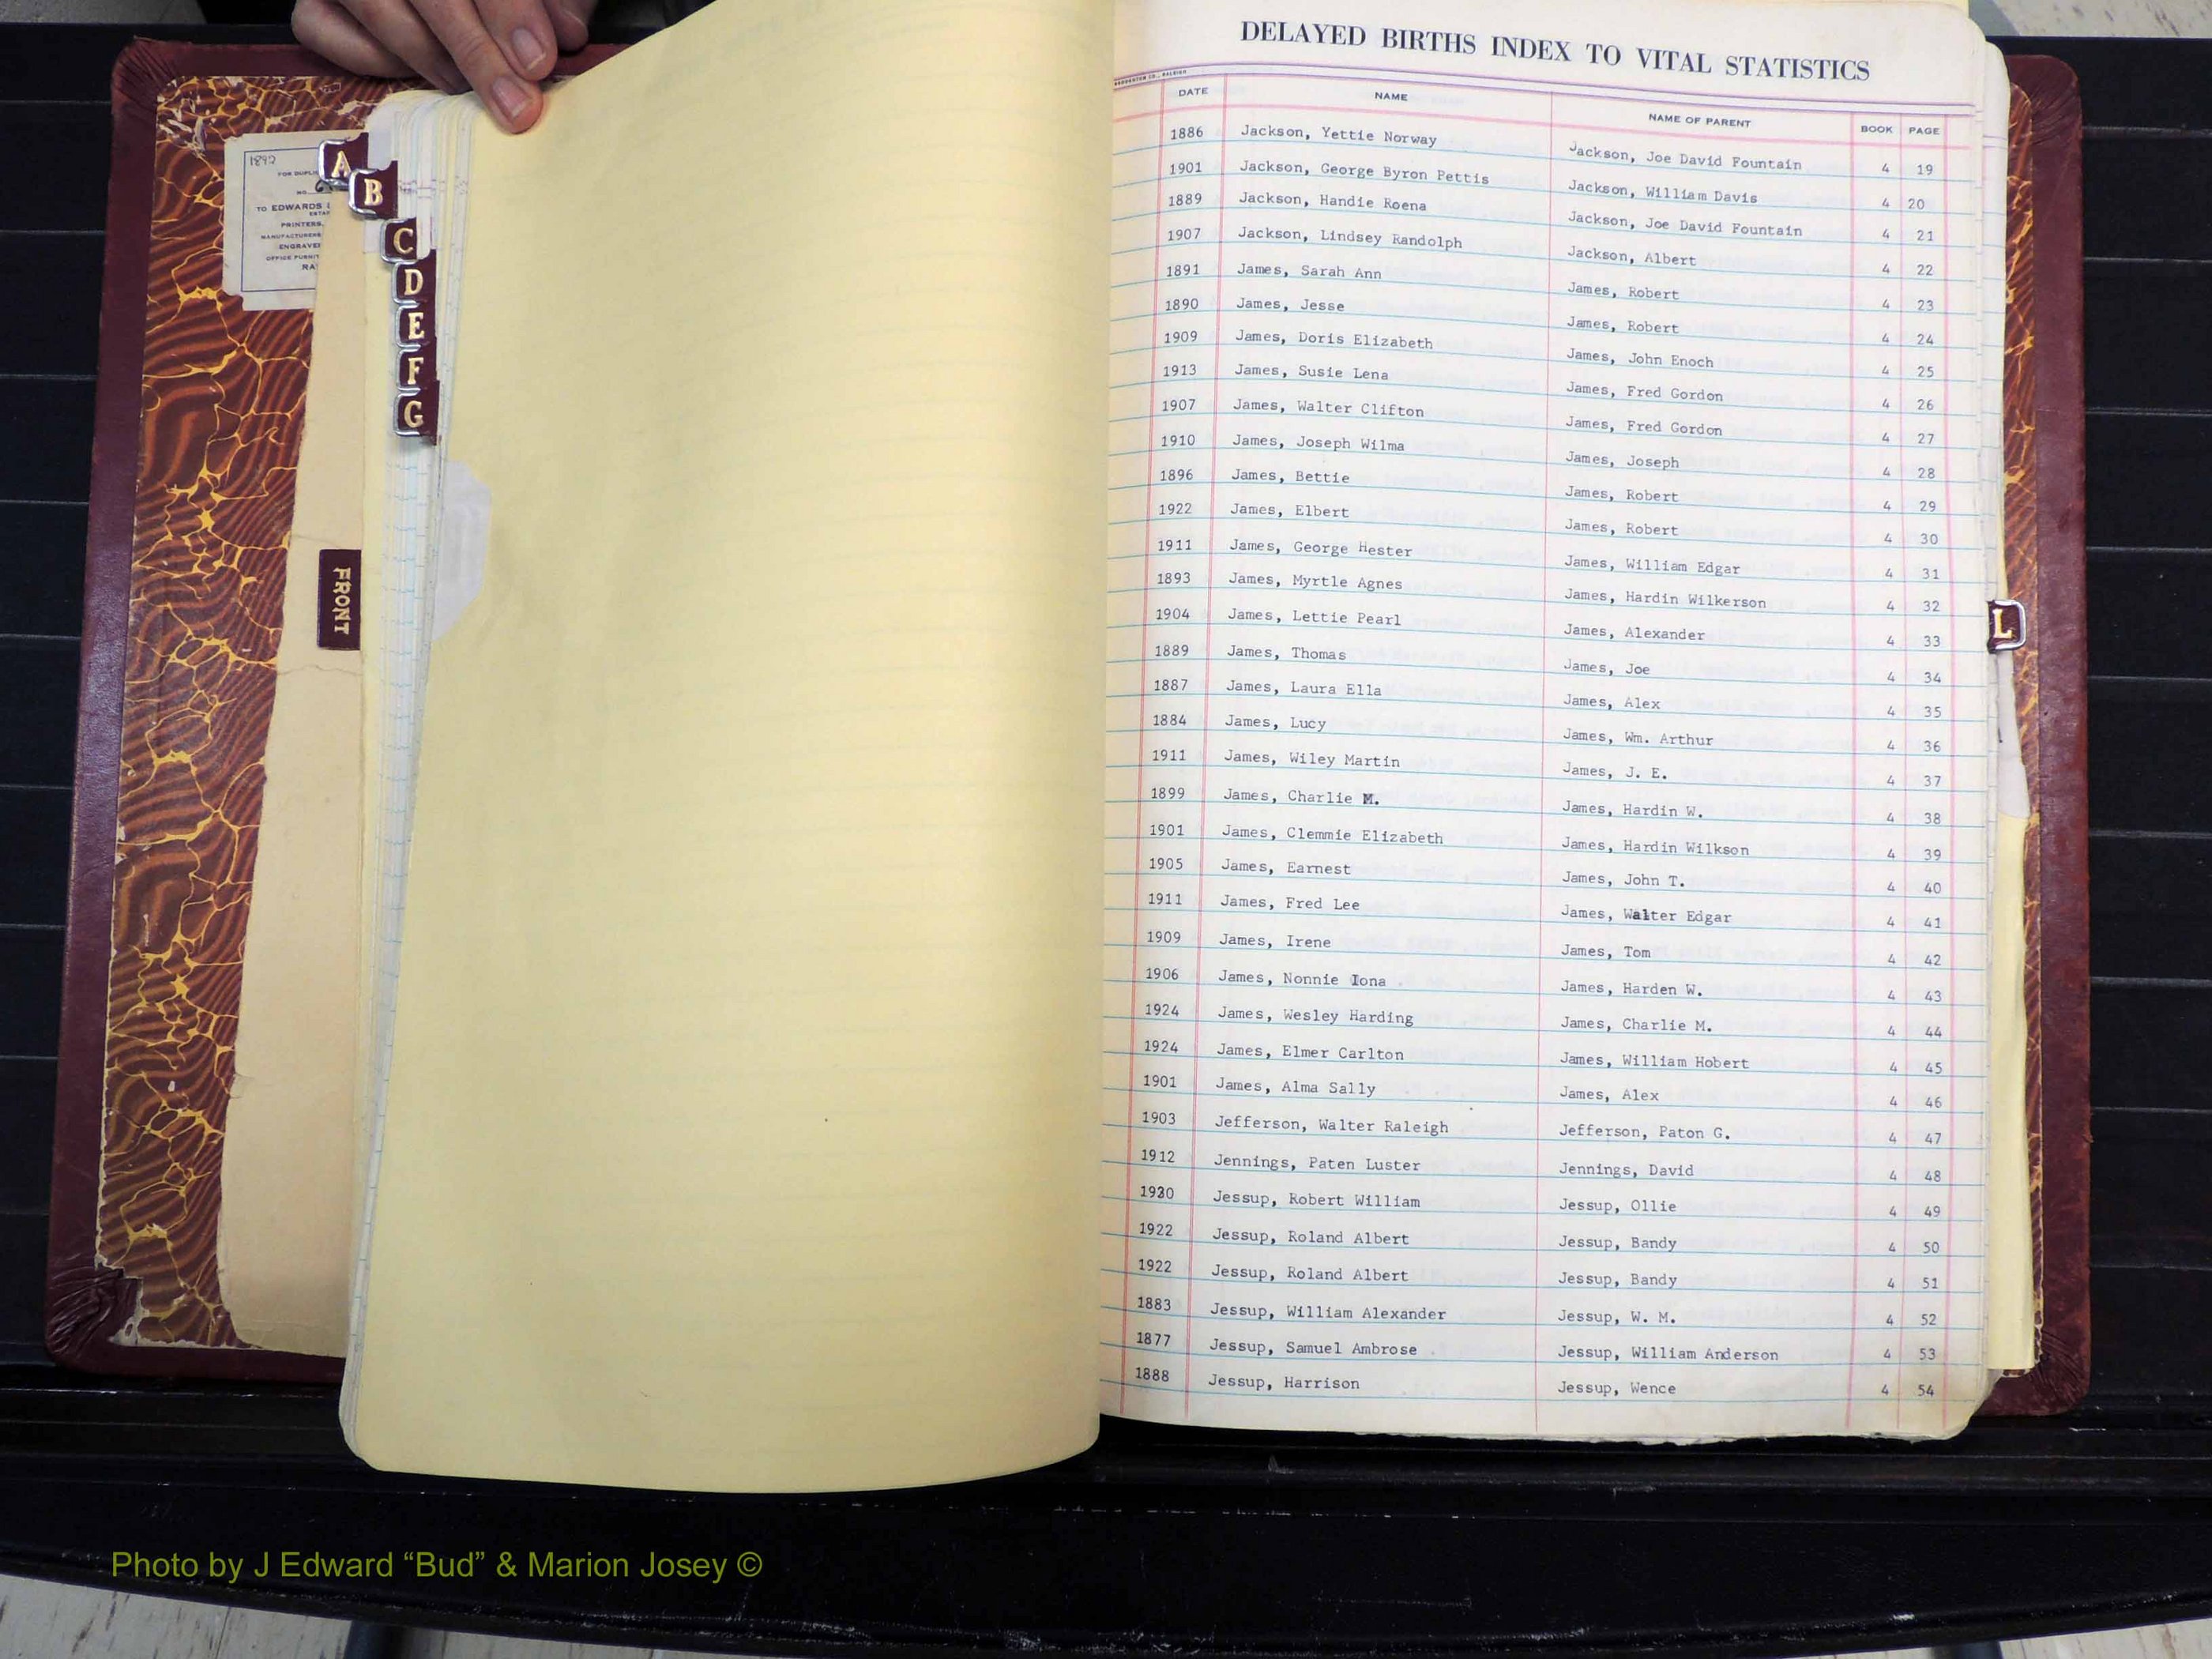 1892
FOR DUPLI
NO.
TO EDWARDS &
ESTAB
PRINTERS,
MANUFACTURERS
ENGRAVE
OFFICE FURNIT
RA
A
B
C
D
E
F
G
FRONT
L
DELAYED BIRTHS INDEX TO VITAL STATISTICS
DATE NAME NAME OF PARENT BOOK PAGE
1886 Jackson, Yettie Norway Jackson, Joe David Fountain 4 19
1901 Jackson, George Byron Pettis Jackson, William Davis 4 20
1889 Jackson, Handie Roena Jackson, Joe David Fountain 4 21
1907 Jackson, Lindsey Randolph Jackson, Albert 4 22
1891 James, Sarah Ann James, Robert 4 23
1890 James, Jesse James, Robert 4 24
1909 James, Doris Elizabeth James, John Enoch 4 25
1913 James, Susie Lena James, Fred Gordon 4 26
1907 James, Walter Clifton James, Fred Gordon 4 27
1910 James, Joseph Wilma James, Joseph 4 28
1896 James, Bettie James, Robert 4 29
1922 James, Elbert James, Robert 4 30
1911 James, George Hester James, William Edgar 4 31
1893 James, Myrtle Agnes James, Hardin Wilkerson 4 32
1904 James, Lettie Pearl James, Alexander 4 33
1889 James, Thomas James, Joe 4 34
1887 James, Laura Ella James, Alex 4 35
1884 James, Lucy James, Wm. Arthur 4 36
1911 James, Wiley Martin James, J. E. 4 37
1899 James, Charlie M. James, Hardin W. 4 38
1901 James, Clemmie Elizabeth James, Hardin Wilkson 4 39
1905 James, Earnest James, John T. 4 40
1911 James, Fred Lee James, Walter Edgar 4 41
1909 James, Irene James, Tom 4 42
1906 James, Nonnie Iona James, Harden W. 4 43
1924 James, Wesley Harding James, Charlie M. 4 44
1924 James, Elmer Carlton James, William Hobert 4 45
1901 James, Alma Sally James, Alex 4 46
1903 Jefferson, Walter Raleigh Jefferson, Paton G. 4 47
1912 Jennings, Paten Luster Jennings, David 4 48
1920 Jessup, Robert William Jessup, Ollie 4 49
1922 Jessup, Roland Albert Jessup, Bandy 4 50
1922 Jessup, Roland Albert Jessup, Bandy 4 51
1883 Jessup, William Alexander Jessup, W. M. 4 52
1877 Jessup, Samuel Ambrose Jessup, William Anderson 4 53
1888 Jessup, Harrison Jessup, Wence 4 54
Photo by J Edward “Bud” & Marion Josey ©